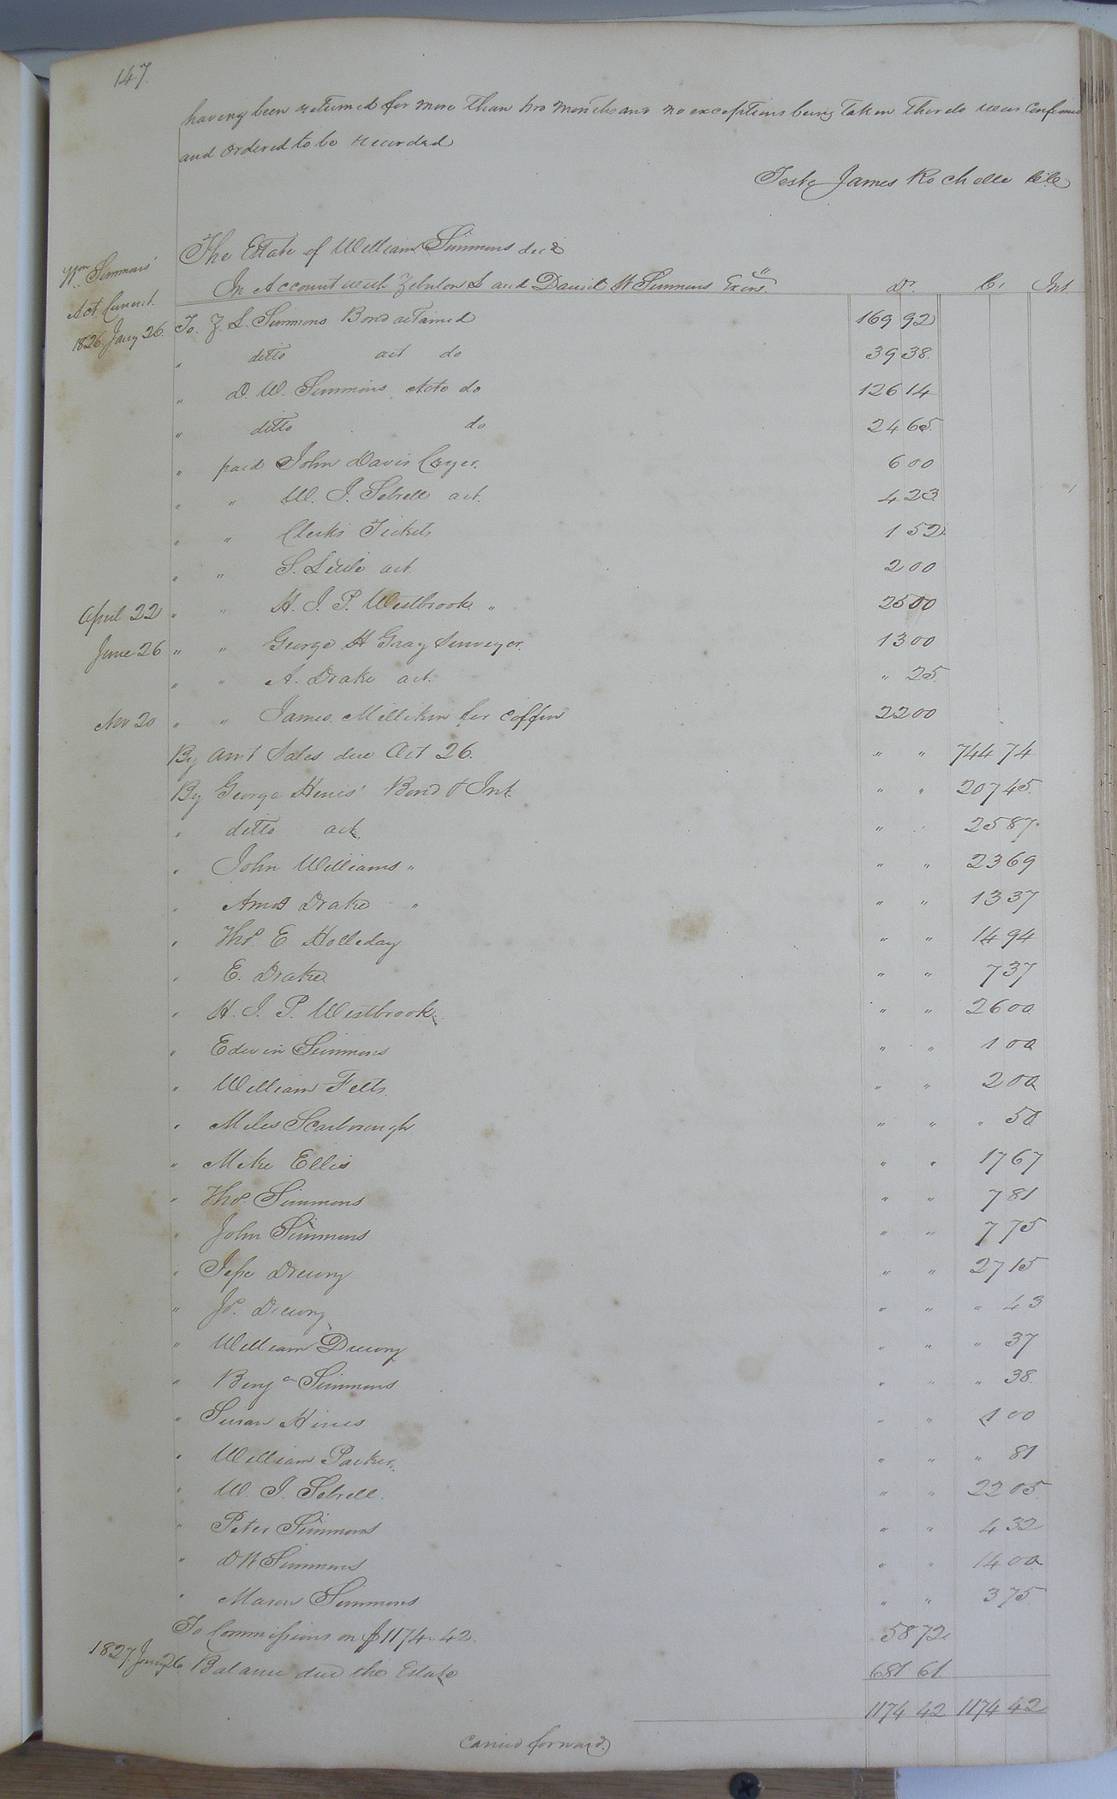 147.
having been returned for more than two months and no exceptions being taken thereto was confirmed
and ordered to be recorded
Teste James Rochelle
The Estate of William Simmons decd
In Account with Zebulon S and Daniel W Simmons Exors. Dr. Cr Int
Wm Simmons'
Act Current.
1826 Jany 26. To Z S. Simmons Bond retained 169 92
" ditto act do 39 38
" D. W. Simmons Note do 126 14
" ditto do 24 65
" paid John Davis Cryer. 6 00
" " W. J. Sebrell act. 4 23
" " Clerks Tickets 1 52
" " S. Little act 2 00
April 22 " " H. J. P. Westbrook " 25 00
June 26 " " George H Gray Surveyor. 13 00
" " A. Drake act. " 25
Nov 20 " " James Milliken for Coffin 22 00
By amt Sales due Oct 26. " " 744 74
By George Hines' Bond & Int. " " 207 45
" ditto act. " " 25 87
" John Williams " " " 23 69
" Amos Drake " " " 13 37
" Thos. E Holleday " " 14 94
" E. Drake " " 7 37
" H. J. P. Westbrook " " 26 00
" Edwin Simmons " " 1 00
" William Felts " " 2 00
" Miles Scarborough " " " 50
" Mike Ellis " " 17 67
" Thos. Simmons " " 7 81
" John Simmons " " 7 75
" Jesse Drewry " " 27 15
" Jo. Drewry " " " 43
" William Drewry " " " 37
" Benja Simmons " " " 38
" Susan Hines " " 1 00
" William Parker " " " 81
" W J. Sebrell. " " 22 05
" Peter Simmons " " 4 32
" D W Simmons " " 14 00
" Mason Simmons " " 3 75
To Commissions on $1174.42. 58 72
1827 Jany 26 Balance due the Estate 681 61
1174 42 1174 42
Carried forward)